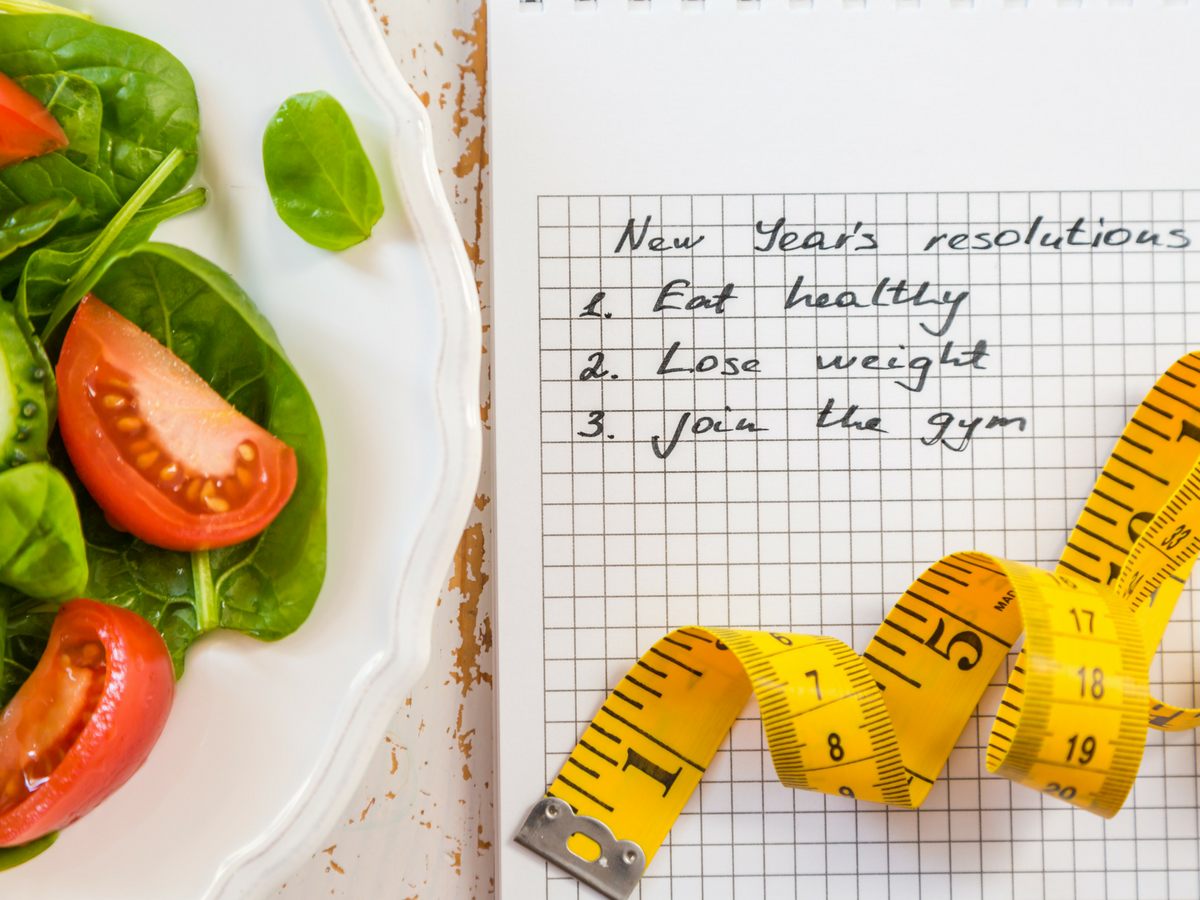 New Year's resolutions
1. Eat healthy
2. Lose weight
3. Join the gym
1
6
7
8
9
5
MAD
17
18
19
20